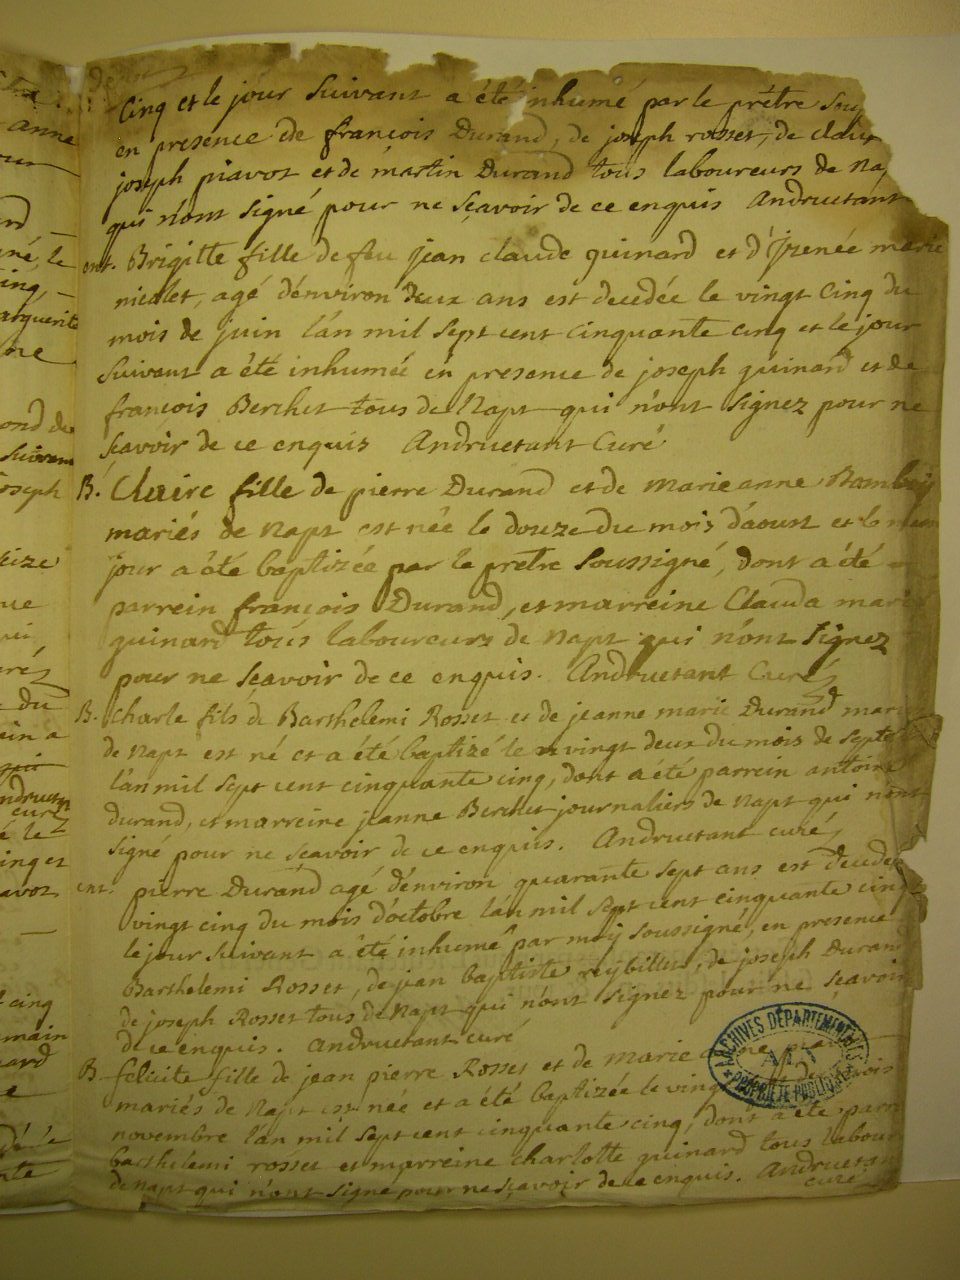 Cinq et le jour suivant a été inhumé par le prêtre
en presence de françois Durand, de joseph rosset, de
joseph piavoz et de martin Durand tous laboureurs de
qui n'ont signé pour ne sçavoir de ce enquis Andruetant
ent. Brigitte fille de feu jean claude guinard et d'jrenée marie
nicolet, agé d'environ deux ans est decedée le vingt cinq du
mois de juin l'an mil sept cent cinquante cinq et le jour
suivant a été inhumée en presence de joseph guinard et de
françois Berchet tous de Napt qui n'ont signez pour ne
sçavoir de ce enquis Andruetant Curé
B. Claire fille de pierre Durand et de marie anne
mariés de Napt est née le douze du mois d'aoust et le
jour a été baptizée par le pretre soussigné, dont a été
parrein françois Durand, et marreine Clauda
guinard tous laboureurs de napt qui n'ont signez
pour ne sçavoir de ce enquis. Andruetant Curé
B. Charle fils de Barthelemi Rosset et de jeanne marie Durand
de Napt est né et a été baptizé le vingt deux du mois de
l'an mil sept cent cinquante cinq, dont a été parrein antoine
durand, et marreine jeanne Berchet journaliers de Napt qui n'ont
signé pour ne sçavoir de ce enquis. Andruetant curé
ent. pierre Durand agé d'environ quarante sept ans est decedé
vingt cinq du mois d'octobre l'an mil sept cent cinquante cinq
le jour suivant a été inhumé par moÿ soussigné, en presence
Barthelemi Rosset, de jean baptiste reybillet, de joseph Durand
de joseph Rosset tous de Napt qui n'ont signez pour ne sçavoir
de ce enquis. Andruetant curé
B felicite fille de jean pierre Rosset et de marie
mariés de Napt est née et a été baptizée le
novembre l'an mil sept cent cinquante cinq, dont a été
barthelemi rosset et marreine charlotte guinard tous
de Napt qui n'ont signé pour ne sçavoir de ce enquis.
curé
ARCHIVES DÉPARTEMENTALES
PROPRIÉTÉ PUBLIQUE